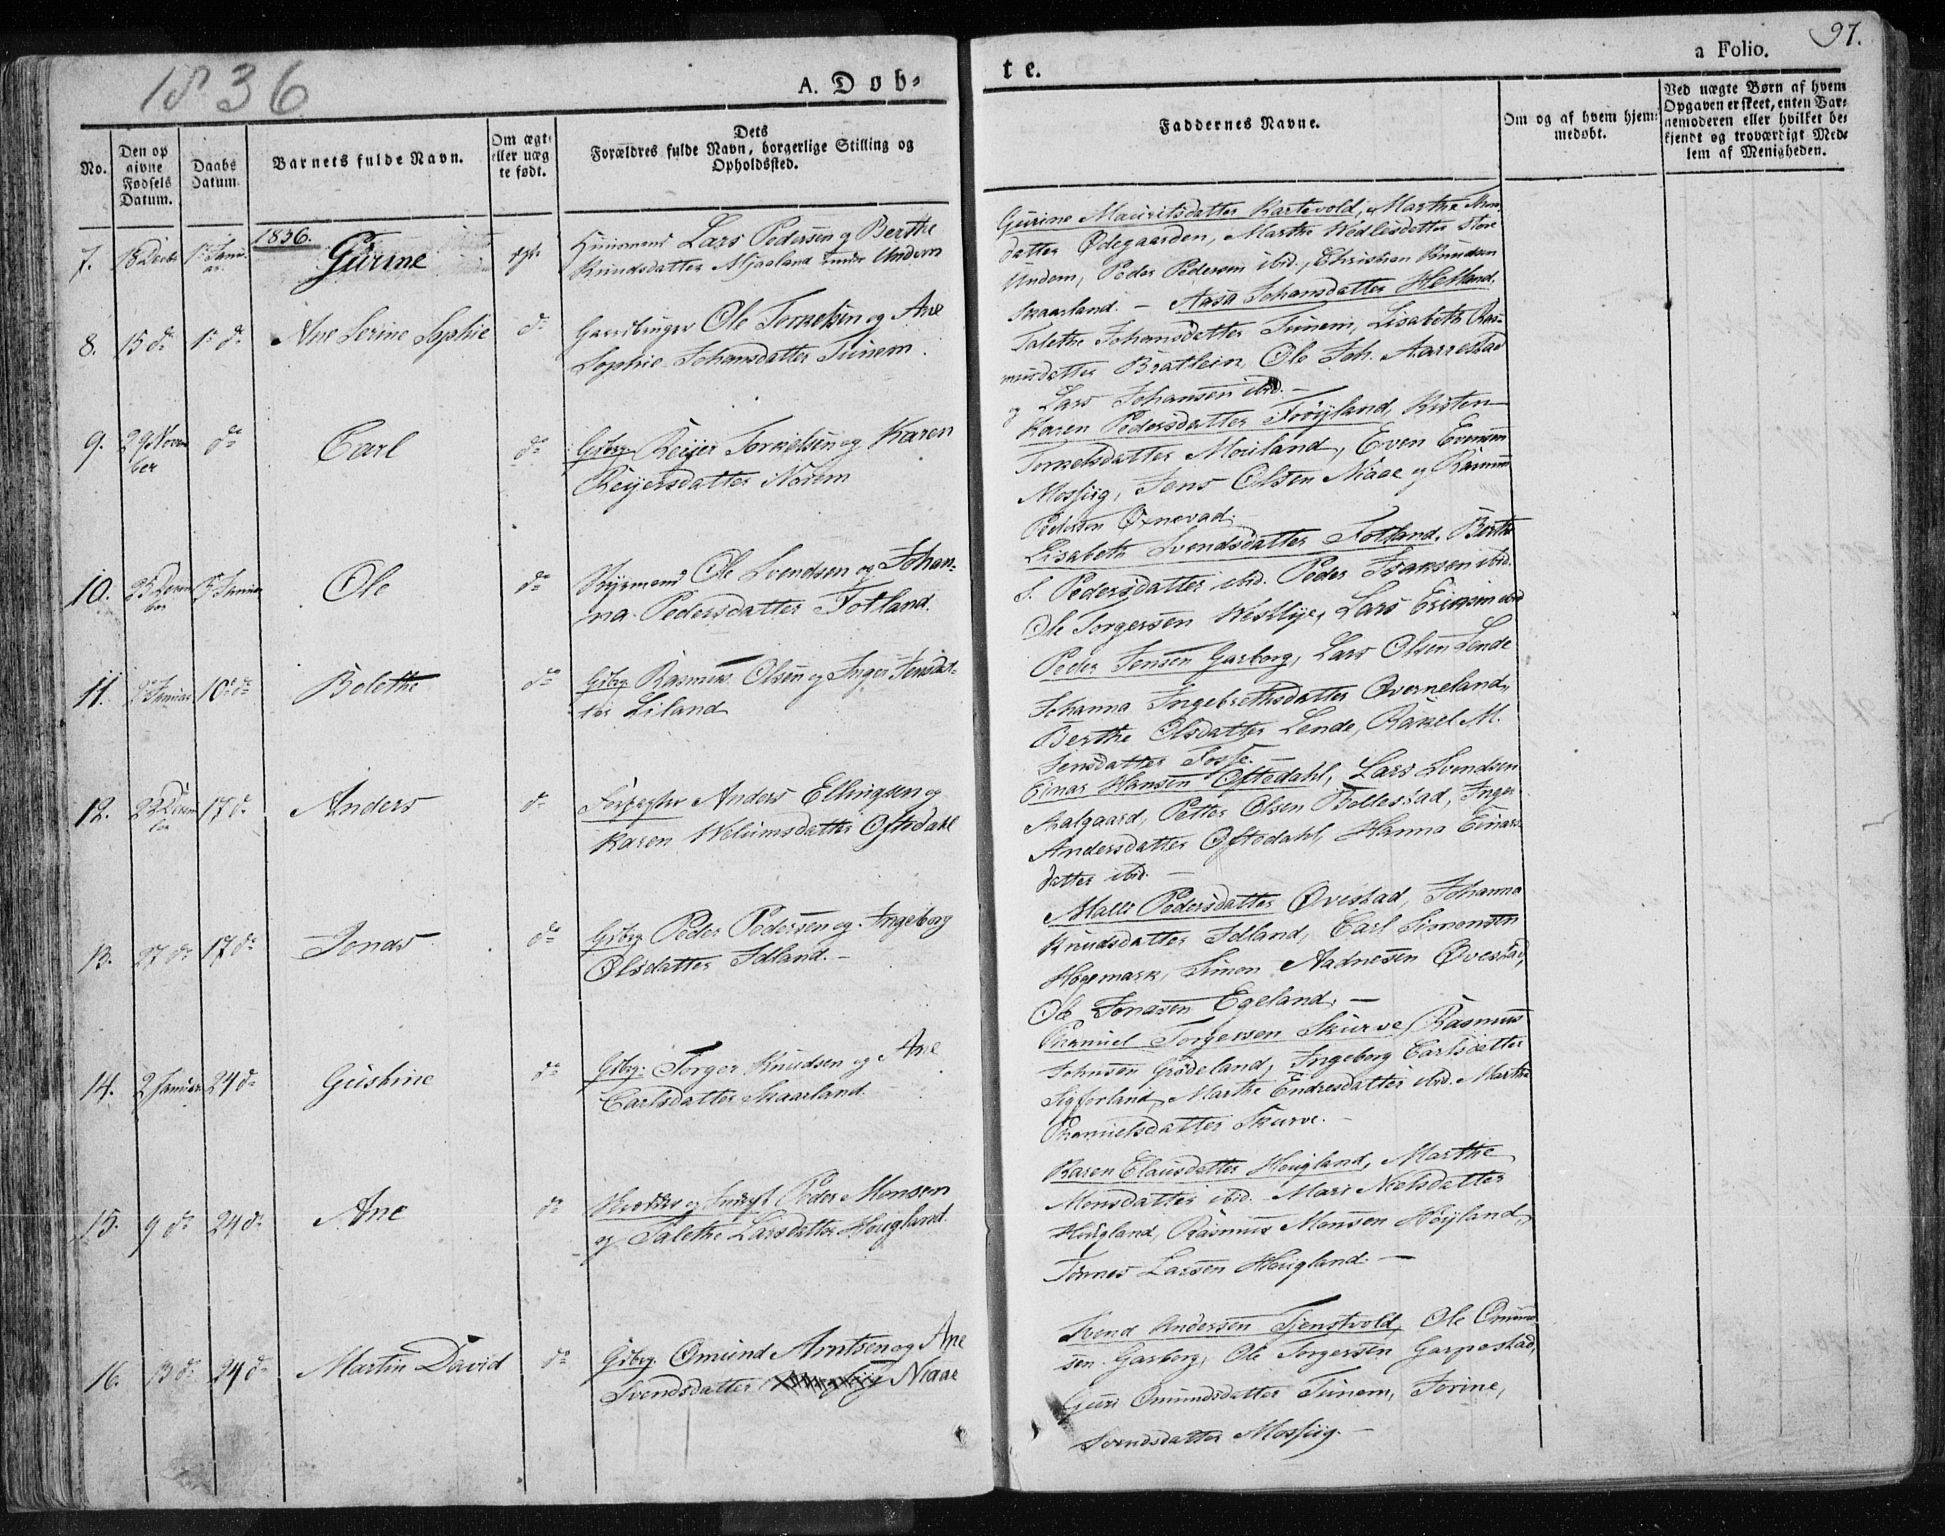 1836
A. Døb-
te.
a Folio.
97.
No.
Den op
givne
Fødsels
Datum.
Daabs
Datum.
Barnets fulde Navn.
Om ægte
eller uæg
te født.
Dets
Forældres fulde Navn, borgerlige Stilling og
Opholdssted.
Faddernes Navne.
Om og af hvem hjem-
medøbt.
Ved uægte Børn af hvem
Opgaven er skeet, enten Bar-
nemoderen eller hvilket be-
kjendt og troværdigt Med-
lem af Menigheden.
1836.
7.
Gurine
Huusmand Lars Pedersen og Berthe
Knudsdatter Mjaaland under Undem
Gurine Mauritsdatter Kartevold, Marthe
datter Ødegaarden, Marthe Vedlesdatter Store
Undem, Peder Pedersen ibid., Christian Knudsen
Skaarland. —
8. 15 do 1 do Ane Serine Sophie do
Ole Torkelsen og Ane
Sophie Johansdatter Tunem.
Aasa Johansdatter Hetland,
Talethe Johansdatter Tunem, Lisabeth Ras-
musdatter Bratlein, Ole Joh. Aarrestad
og Lars Johansen ibid. —
9. 29 Novem
ber do Carl do
Gbrg Reijer Torkelsen og Karen
Reijersdatter Norem
Karen Pedersdatter Frøyland, Kisten
Torkelsdatter Moiland, Even Evensen
Mossiig, Jens Olsen Niaae og Rasmus
Pedersen Øxnevad.
10. 25 Decem
ber Ole do
Ole Svendsen og Johan-
na Pedersdatter Fotland.
Lisabeth Svendsdatter Fotland, Berthe
S. Pedersdatter ibid. Peder Isaksen ibid.
Ole Torgersen Westlye, Lars Ericksen ibid
11. Januar 10 do Bolethe do
Gbrg Rasmus Olsen og Inger Jensdat-
ter Liland
Peder Jensen Garborg, Lars Olsen Lende
Johanna Ingebrethsdatter Øverneland,
Berthe Olsdatter Lende, Rakel M.
Jensdatter Fosse. —
12. 22 Decem
ber 17 do Anders do
Anders Ellingsen og
Karen Welumsdatter Oftedahl
Einar Hansen Oftedahl, Lars Svendsen
Aalgaard, Petter Olsen Bollestad, Inger
Andersdatter Oftedahl, Hanna Einars-
datter ibid. —
13. 27 do 17 do Jonas do
Gbrg Peder Pedersen og Ingeborg
Olsdatter Idland. —
Malli Pedersdatter Øvestad, Johanna
Knudsdatter Idland, Carl Simonsen
Hogemark, Simon Aadnesen Øvestad,
Ole Jonasen Egeland. —
14. 2 Januar 24 do Gustine do
Gbrg: Torger Knudsen og Ane
Carlsdatter Skaarland.
Thamuel Torgersen Skurve, Rasmus
Johnsen Grødeland, Ingeborg Carlsdatter
Sigforland, Marthe Endresdatter ibid. Marthe
Thamuelsdatter Skurve. —
15. 9 do 24 do Ane do
Peder Monsen
og Talethe Larsdatter Hougland.
Karen Clausdatter Hougland, Marthe
Monsdatter ibid. Mari Neelsdatter
Hougland, Rasmus Monsen Høyland,
Tønnes Larsen Hougland. —
16. 13 do 24 do Martin David do
Gbrg. Omund Arntsen og Ane
Svendsdatter Niaae
Svend Andersen Tjenstvold, Ole Omund-
sen Garborg, Ole Torgersen Garpestad,
Guri Omundsdatter Tunem, Torine,
Svendsdatter Mossiig. —